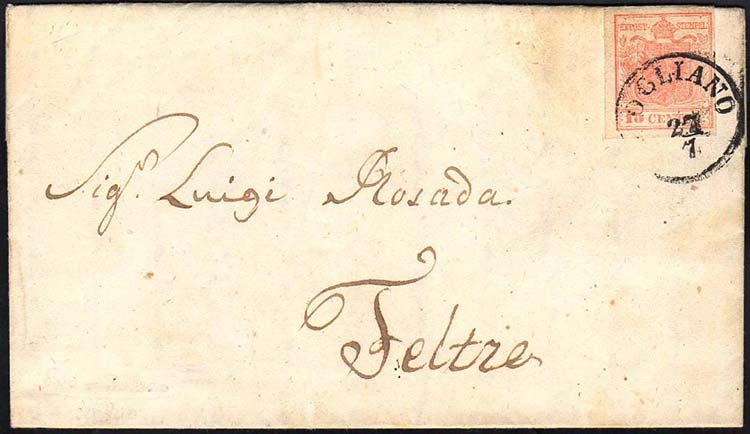 KKPOST-STEMPEL
15 CENTES
OGLIANO
27
7
Sigr. Luigi Rosada.
Feltre